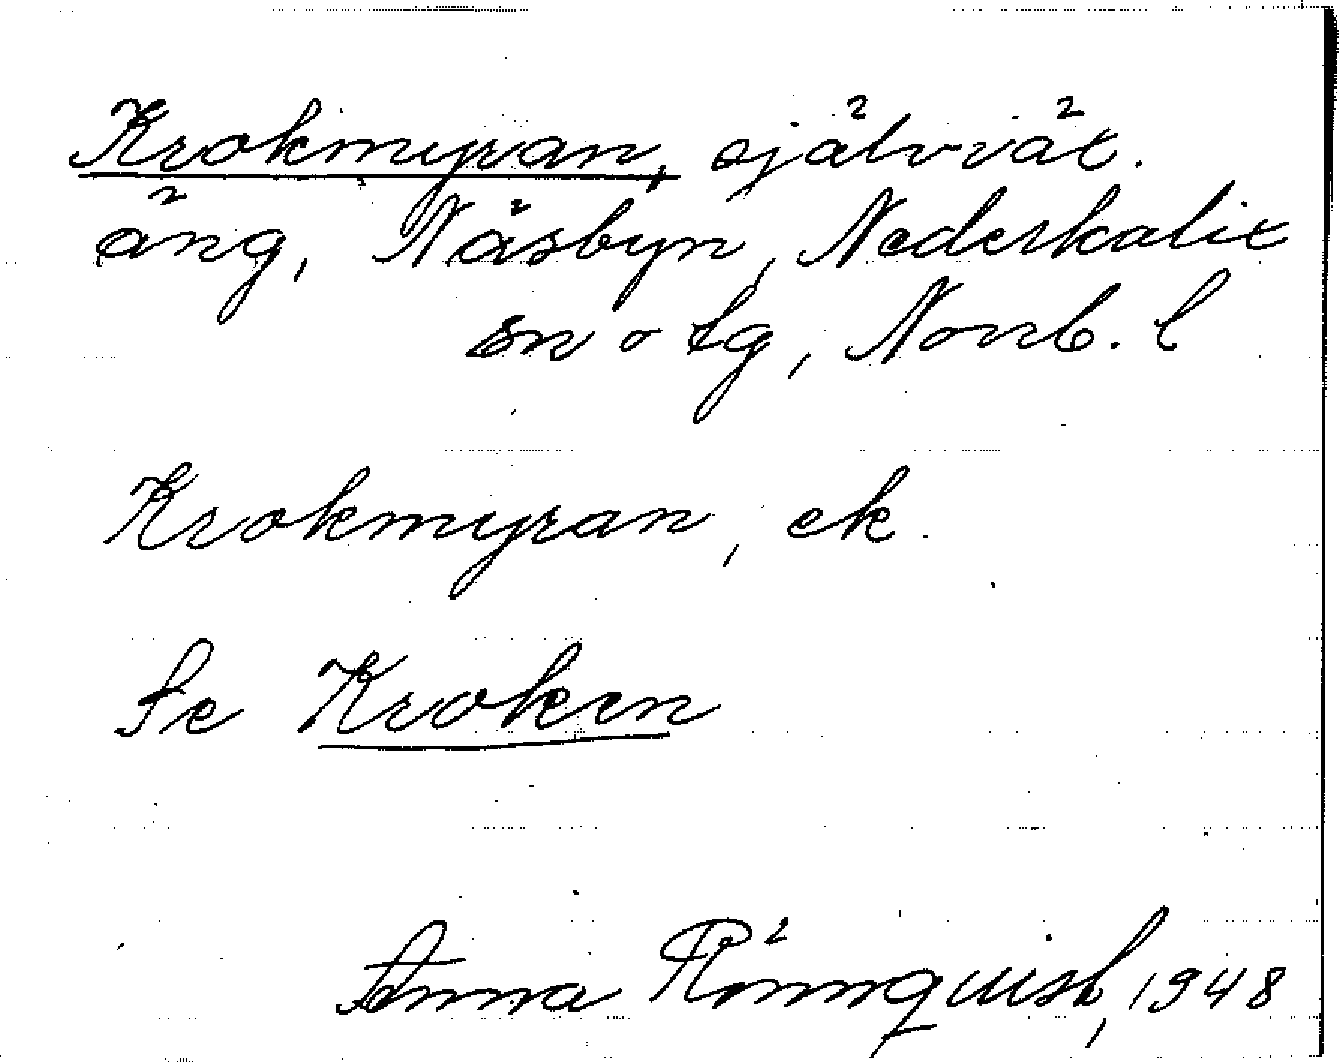 Krokmyran, självvät.
äng, Näsbyn, Nederkalix
sn o tg, Norrb. l
Krokmyran, ek.
Se Kroken
Anna Rönnquist, 1948